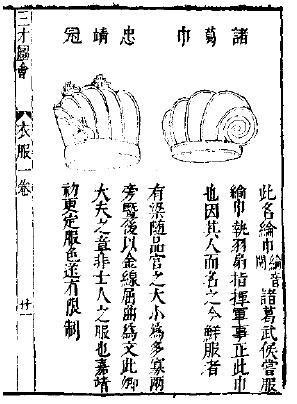 諸葛巾
此名綸巾綸音關諸葛武侯嘗服
綸巾執羽扇指揮軍事正此巾
也因其人而名之今鮮服者
忠靖冠
有梁隨品官之大小爲多寡兩
旁暨後以金線屈曲爲文此卿
大夫之章非士人之服也嘉靖
初更定服色遂有限制
三才圖會
衣服一卷